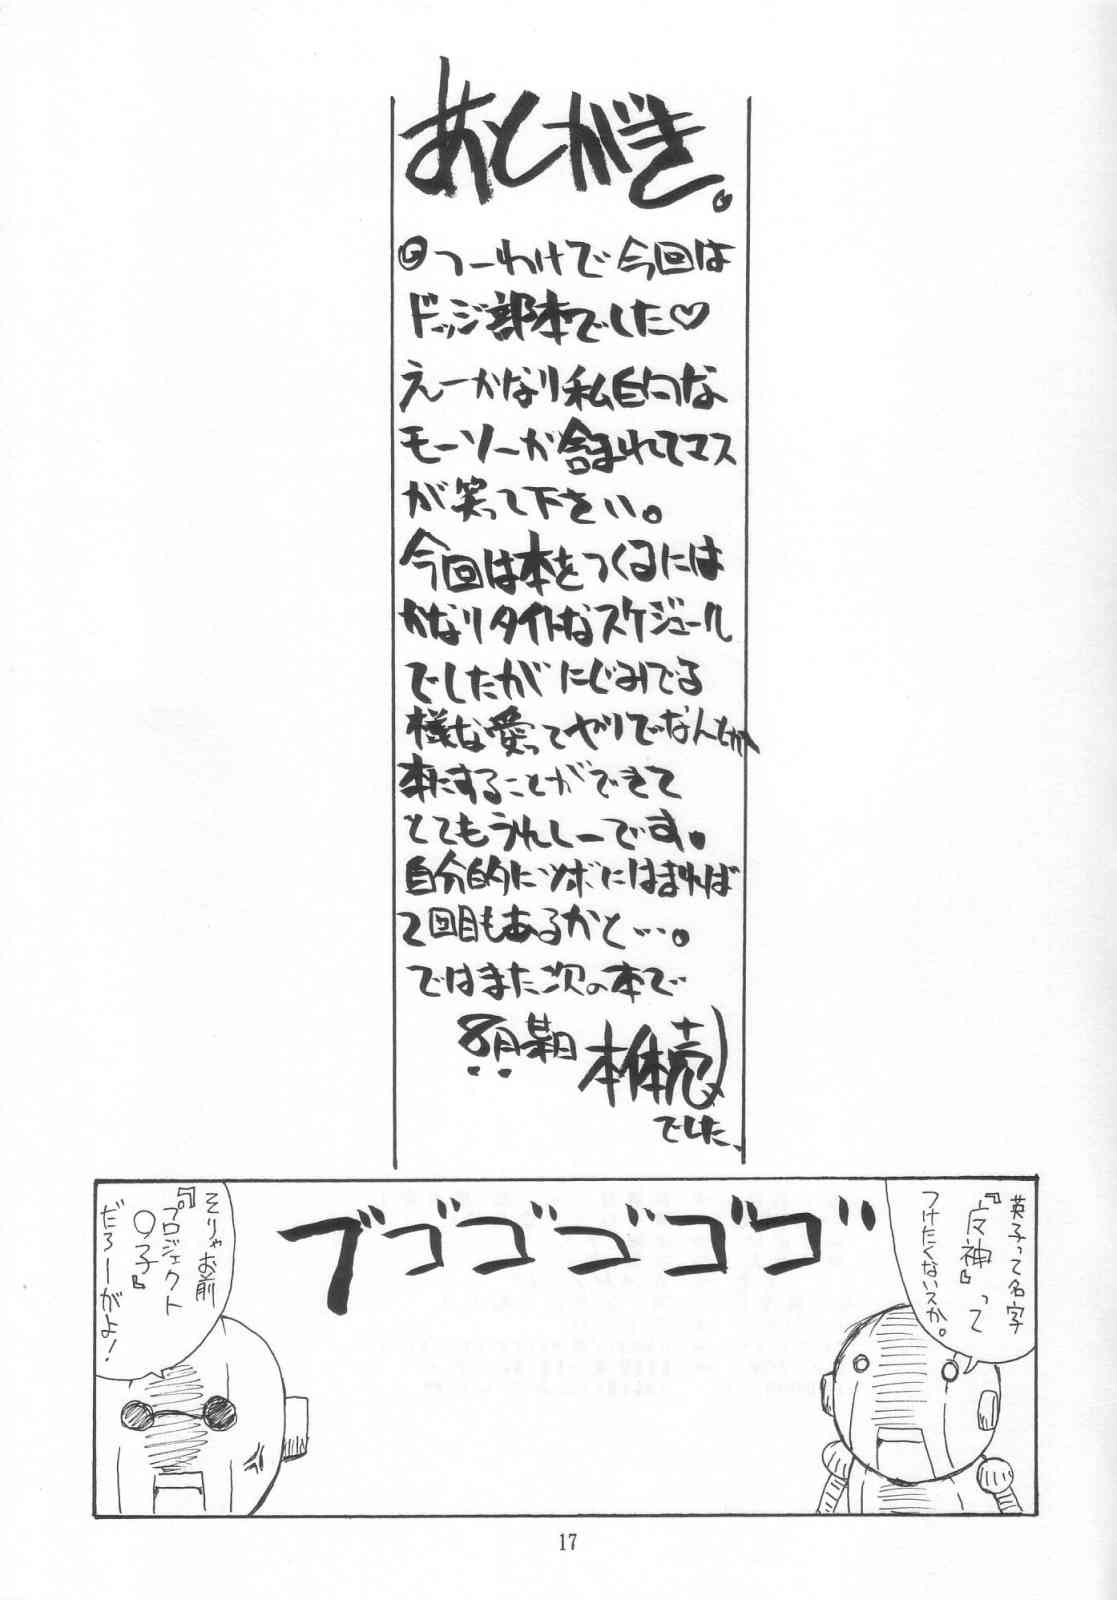 あとがき。
つーわけで今回は
ドッジ部本でした♡
えーかなり私的な
モーソーが含まれてマス
が笑って下さい。
今回は本をつくるには
かなりタイトなスケジュール
でしたがにじみでる
様な愛ってヤツでなんとか
本にすることができて
とてもうれしーです。
自分的にツボにはまれば
2回目もあるかと…。
ではまた次の本で
8月某日
本体売
でした、
英子って名字
『皮神』って
つけたくないスか。
ゴゴゴゴゴゴ
そりゃお前
『プロジェクト
○子』
だろーがよ!
17